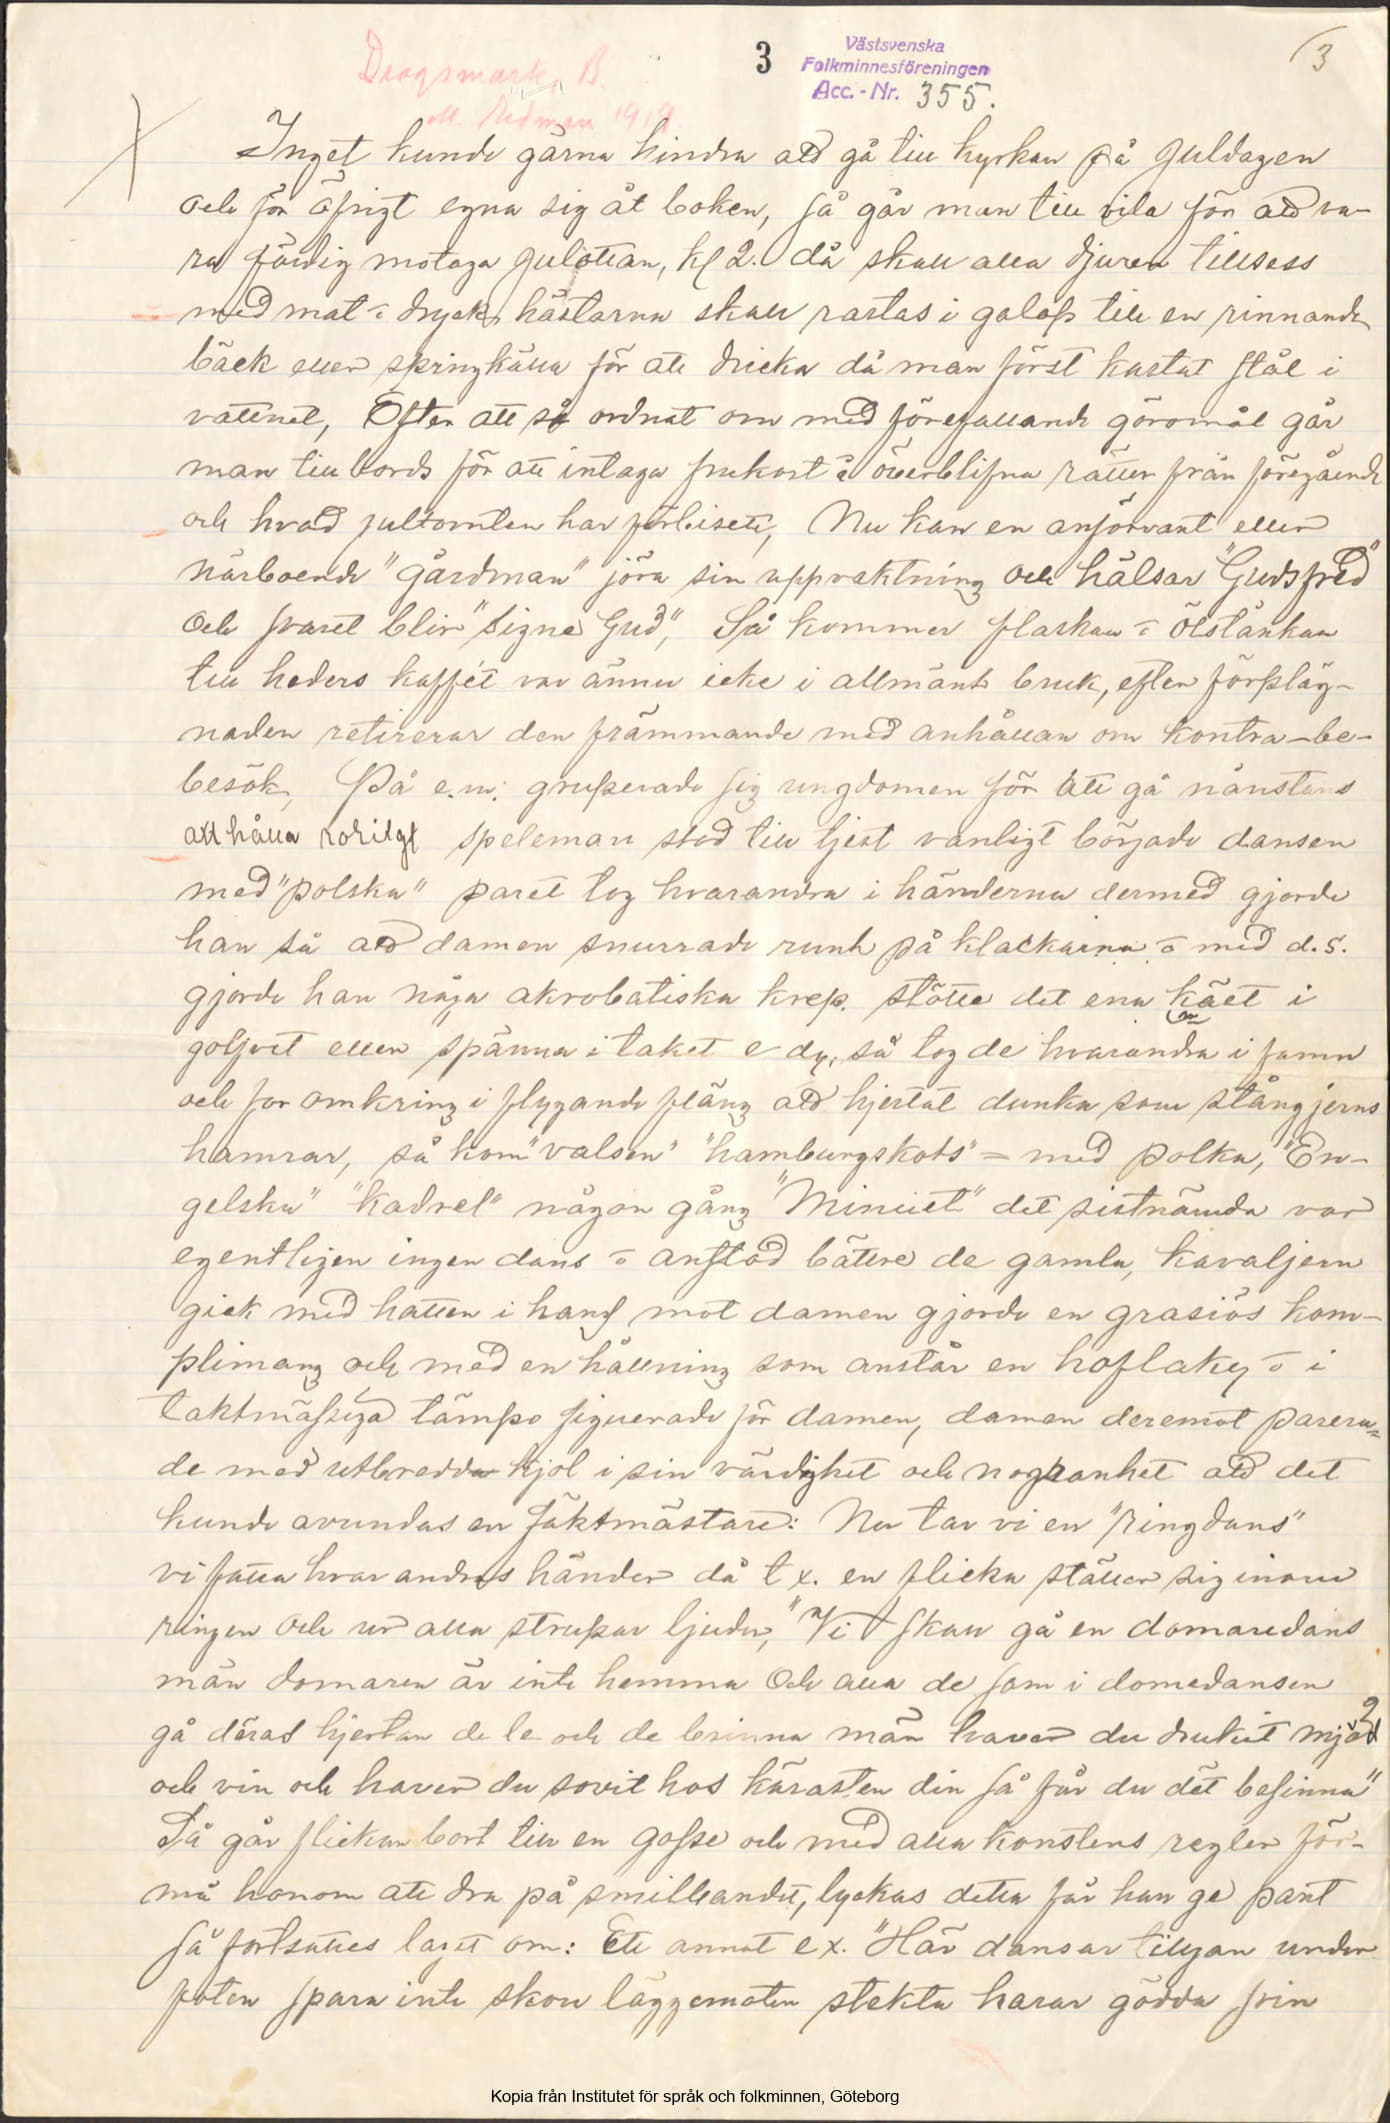 Dragsmark, B.
M. Hedman 1919
3
Västsvenska
Folkminnesföreningen
Acc.-Nr. 355.
3
Inget kunde gärna hindra att gå till kyrkan på Juldagen
och för öfrigt egna sig åt boken, så går man till vila för att va-
ra färdig motaga Julottan, kl 2. då skall alla djuren tillsess
med mat o dryck, hästarna skall rastas i galop till en rinnande
bäck eller springkälla för att dricka då man först kastat stål i
vattnet, Efter att så ordnat om med förefallande göromål går
man till bords för att intaga frukost å överblifna rätter från föregående
och hvad jultomten har förbisett, Nu kan en anförvant eller
närboende "gårdman" jöra sin uppvaktning och hälsar "Gudsfred"
och svaret blir "signe Gud", Så kommer flaskan o ölstånkan
till heders kaffet var ännu icke i allmänt bruk, efter förpläg-
naden retirerar den främmande med anhållan om kontra-be-
besök, På e.m. gruperade sig ungdomen för att gå nånstans
att hålla roligt speleman stod till tjest vanligt började dansen
med "polska" paret tog hvarandra i händerna dermed gjorde
han så att damen snurrade runt på klackarna o med d.s.
gjorde han några akrobatiska krep. stötte det ena käet i
golfvet eller spänna i taket e dy, så tog de hvarandra i famn
och for omkring i flygande fläng att hjertat dunka som stångjerns
hamrar, så kom "valsen" "hamburgskots" = med polka, "En-
gelska" "kadrel" någon gång "Minuet" det sistnämda var
egentligen ingen dans o anstod bättre de gamla, kavaljern
gick med hatten i hand mot damen gjorde en grasiös kom-
plimang och med en hållning som anstår en hoflakej o i
taktmässiga tämpo figurerade för damen, damen deremot parera-
de med utbredda kjol i sin värdighet och nogranhet att det
kunde avundas en fäktmästare: Nu tar vi en "ringdans"
vi fatta hvarandras händer då t x. en flicka ställer sig inom
ringen och ur alla strupar ljuder, "Vi skall gå en domaredans
män domaren är inte hemma Och alla de som i domedansen
gå deras hjertan de le och de brinna män haver du druckit mjöd
och vin och haver du sovit hos kärasten din så får du det besinna"
Så går flickan bort till en gosse och med alla konstens regler för-
må honom att dra på smillbandet, lyckas detta får han ge pant
så fortsattes laget om: Ett annat ex. "Här dansar tilljan under
foten spara inte skon läggematen stekta harar gödda svin
Kopia från Institutet för språk och folkminnen, Göteborg